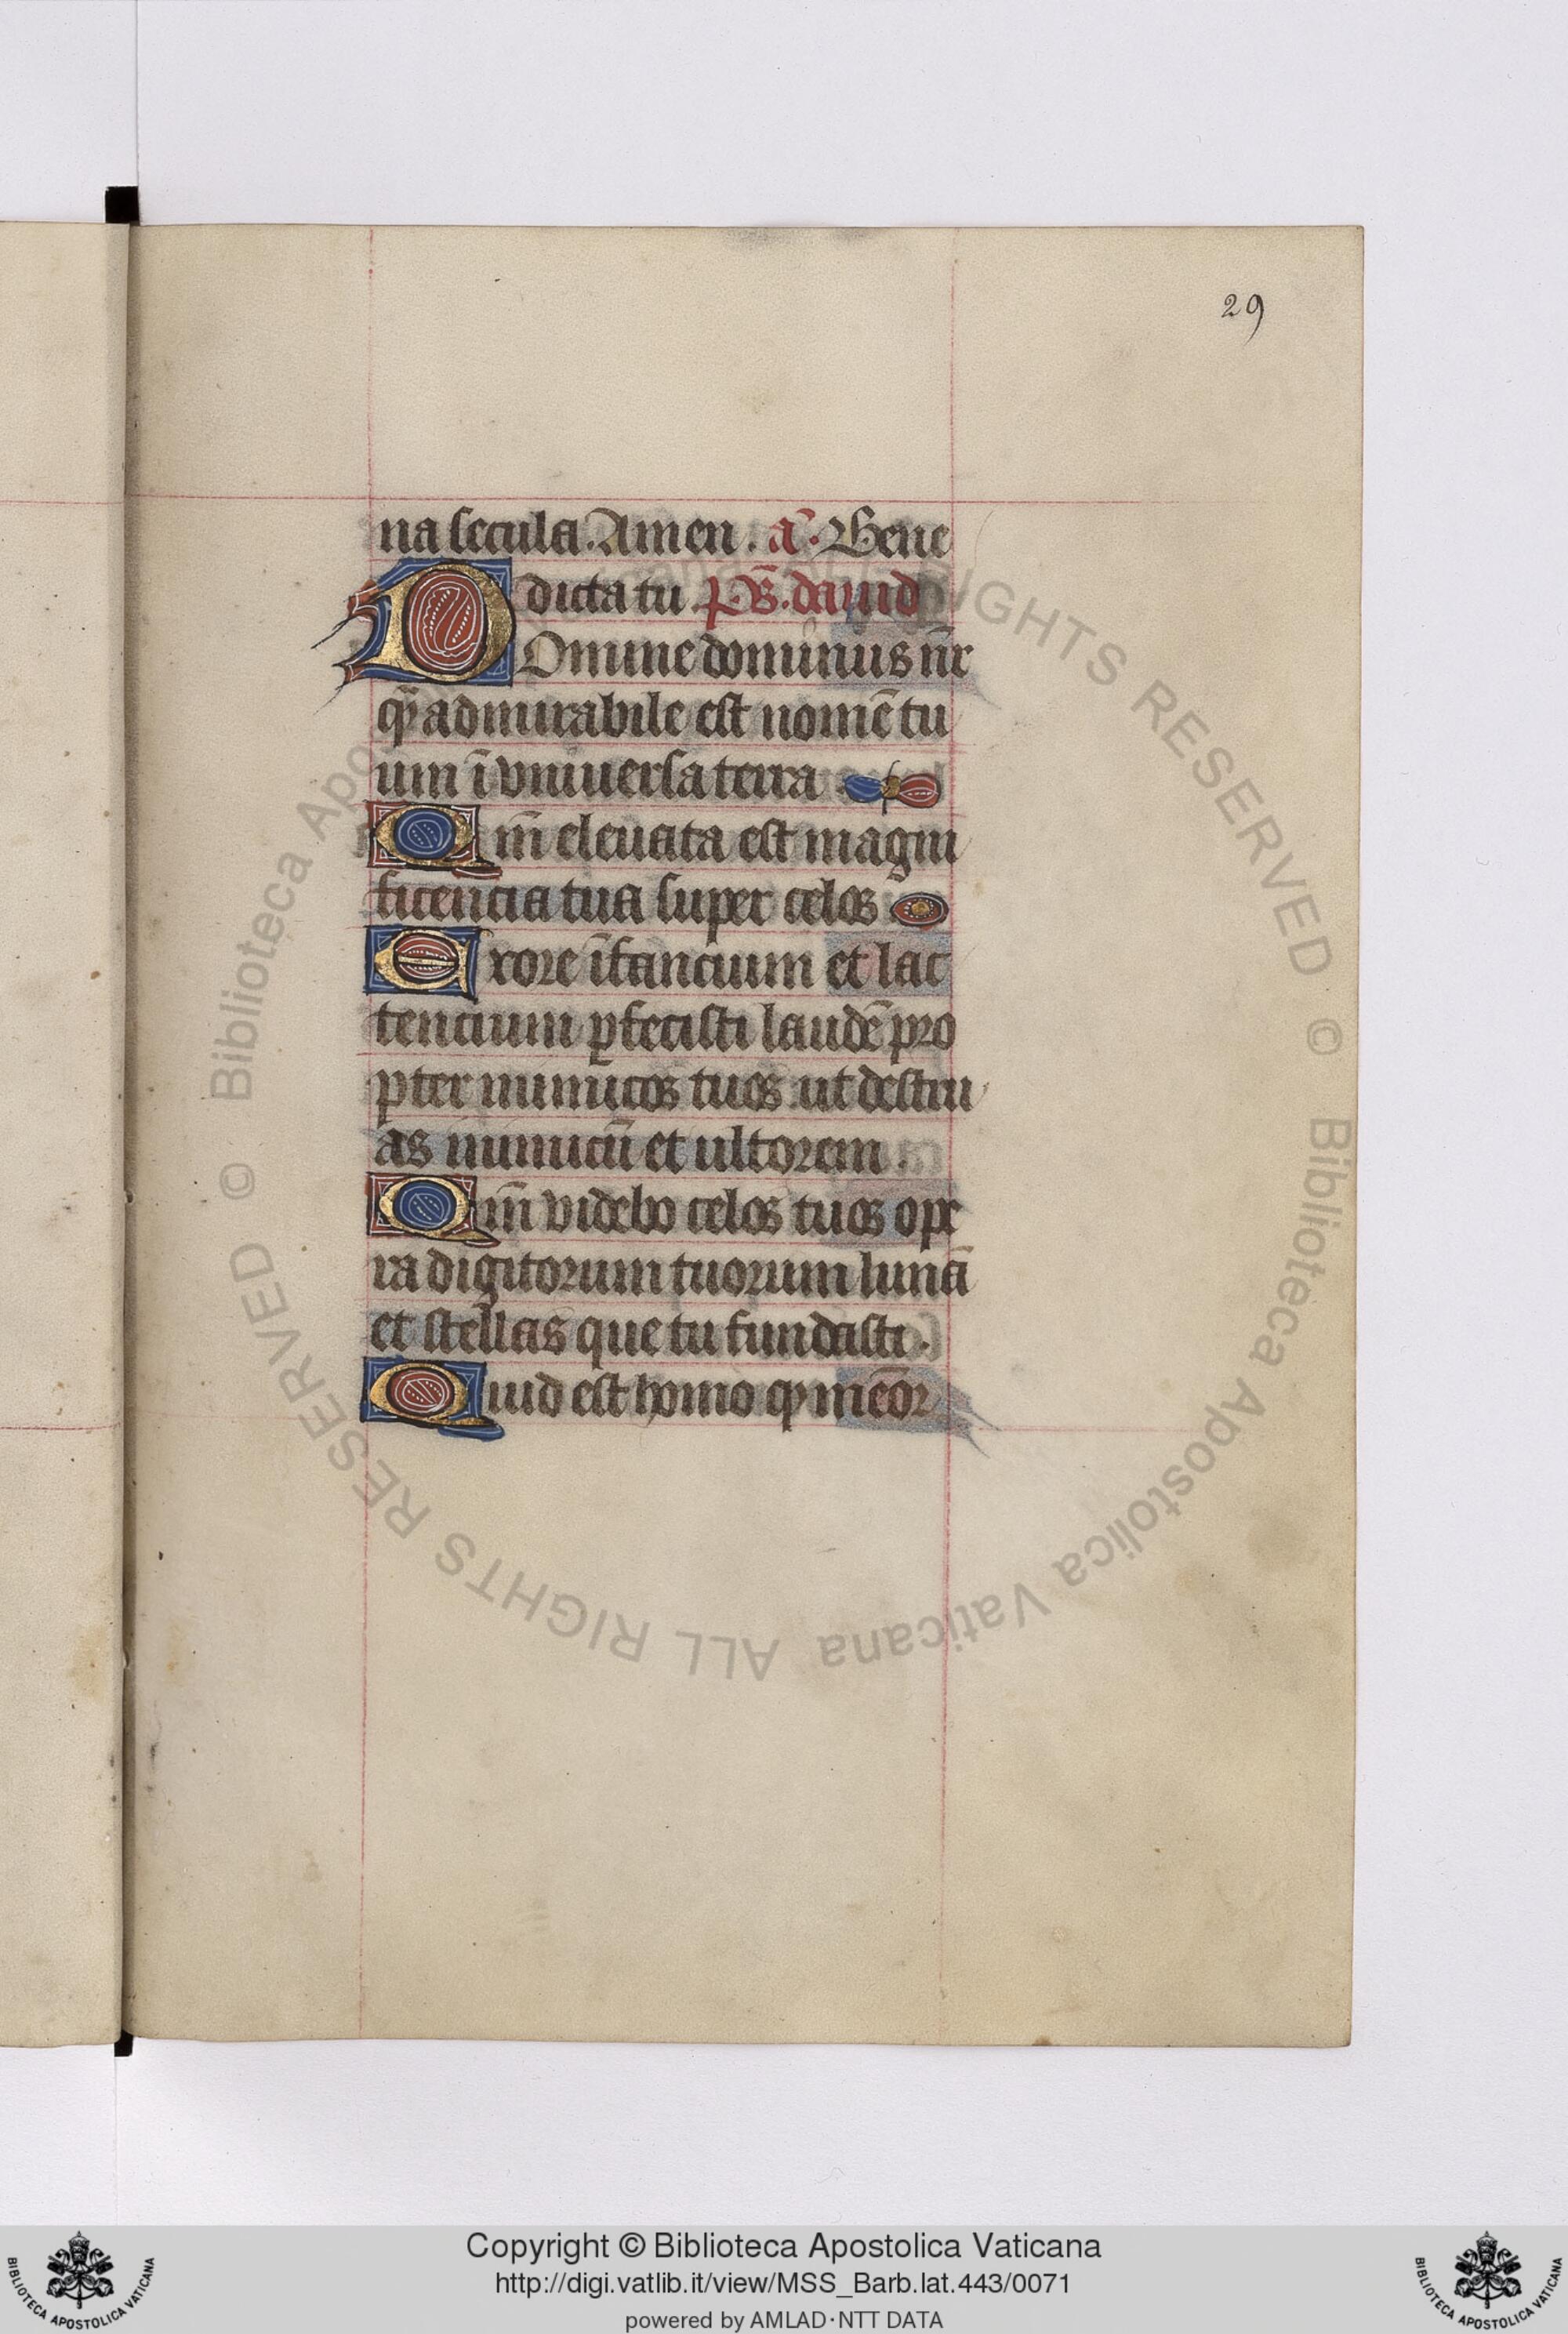 29
na secula. Amen. a͂. Bene
dicta tu. p̄s. dauid
DOmine dominus nr̄
q̄ admirabile est nomē tu
um ī vniuersa terra
Qm̄ eleuata est magni
ficencia tua super celos
Exore īfancium et lac
tencium ꝑfecisti laudē pro
pter inimicos tuos ut destru
as inimicū et ultorem.
Qm̄ videbo celos tuos ope
ra digitorum tuorum lunā
et stellas que tu fundasti.
Quid est homo ꝙ mēor
© Biblioteca Apostolica Vaticana ALL RIGHTS RESERVED © Biblioteca Apostolica Vaticana ALL RIGHTS RESERVED
Copyright © Biblioteca Apostolica Vaticana
http://digi.vatlib.it/view/MSS_Barb.lat.443/0071
powered by AMLAD·NTT DATA
BIBLIOTECA APOSTOLICA VATICANA
BIBLIOTECA APOSTOLICA VATICANA